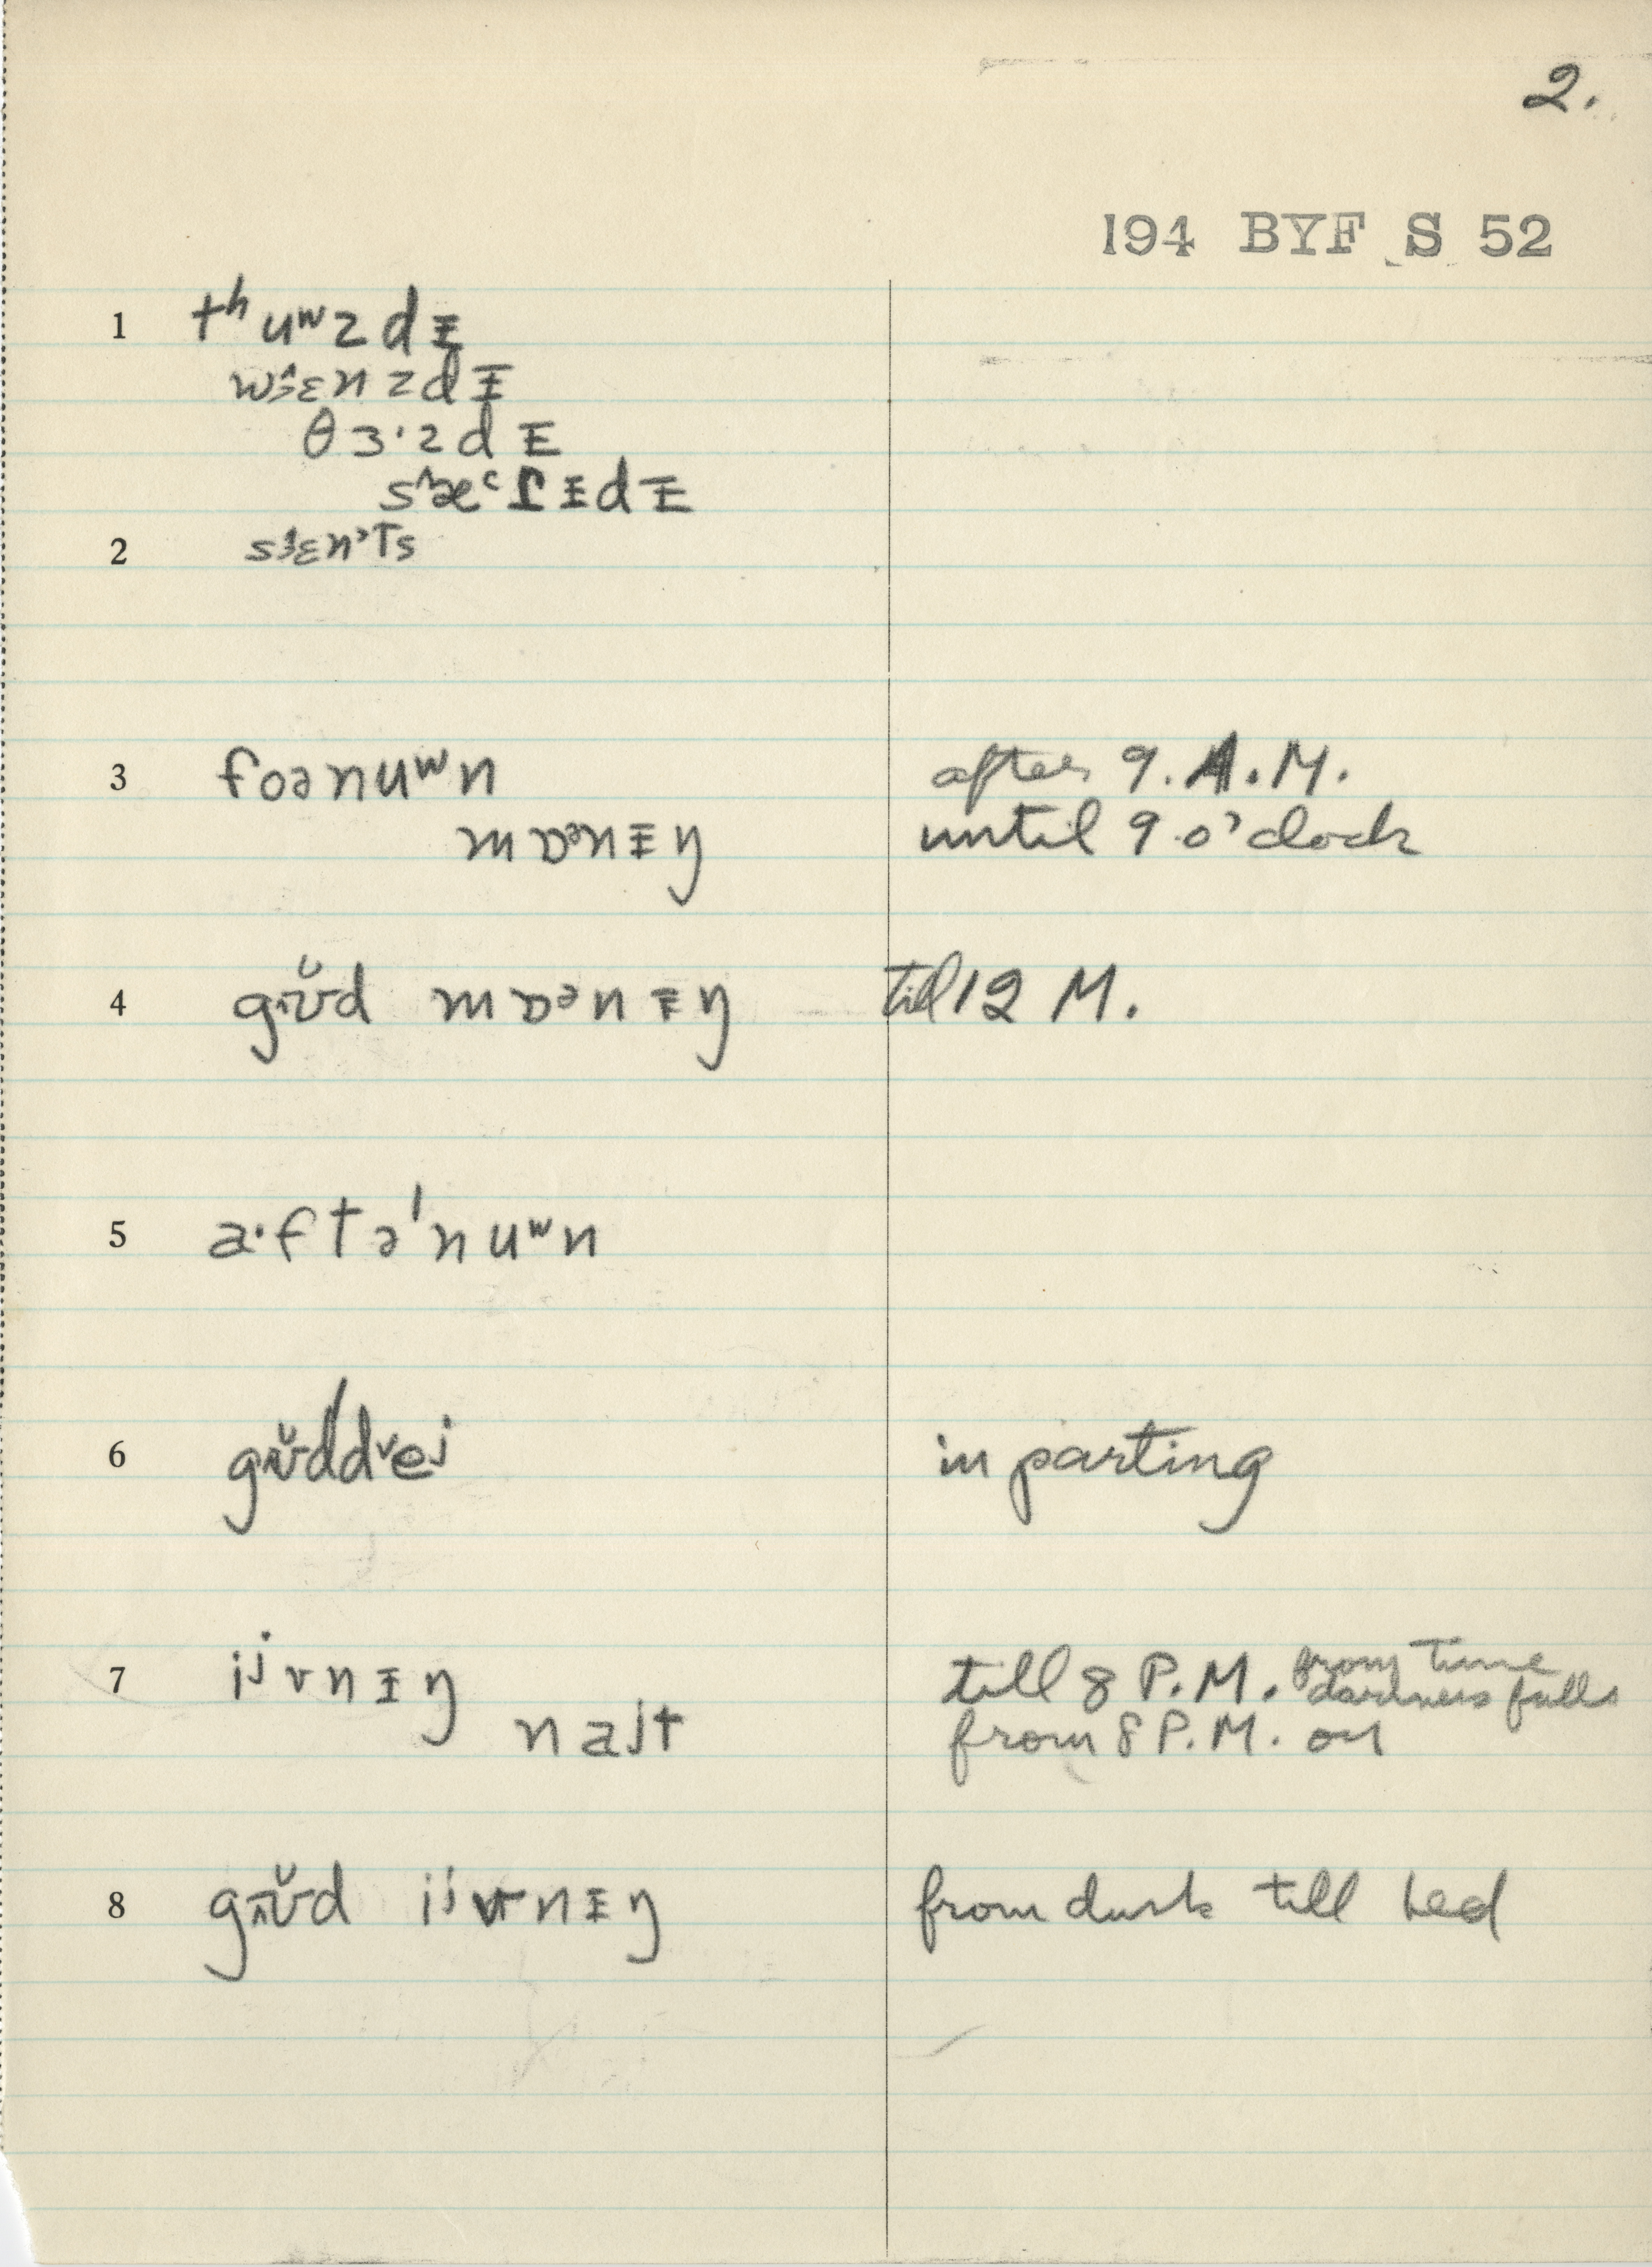 2.
194 BYF S 52
1 tʰuʷzdɪ
wɛnzdɪ
θɜ·zdɪ
sæɾɪdɪ
2 sɛnʼts
3 foənuʷn after 9. A.M.
mɒᵊnɪŋ until 9 o'clock
4 gʊ̆d mɒᵊnɪŋ till 12 M.
5 a·ftə'nuʷn
6 gʊ̆ddeʲ in parting
7 iʲvnɪŋ till 8 P.M. from time darkness falls
naɪt from 8 P.M. on
8 gʊ̆d iʲvnɪŋ from dusk till bed